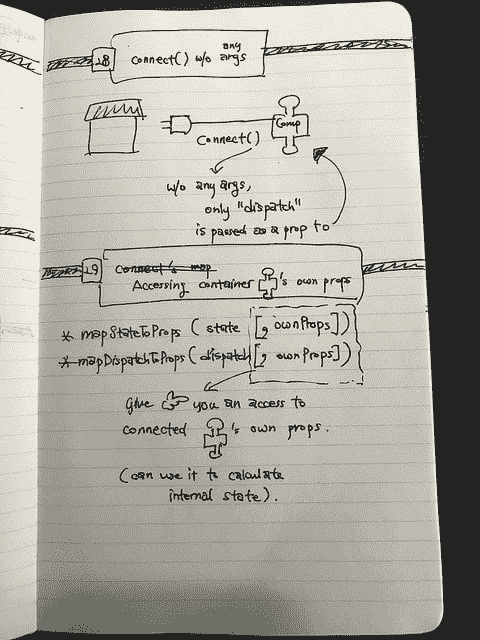 28
connect() w/o any args
Comp
Connect()
w/o any args,
only "dispatch"
is passed as a prop to
29
Connect's map
Accessing container 's own props
* mapStateToProps ( state [, ownProps])
* mapDispatchToProps ( dispatch [, ownProps])
Give you an access to
connected 's own props.
(can use it to calculate
internal state).